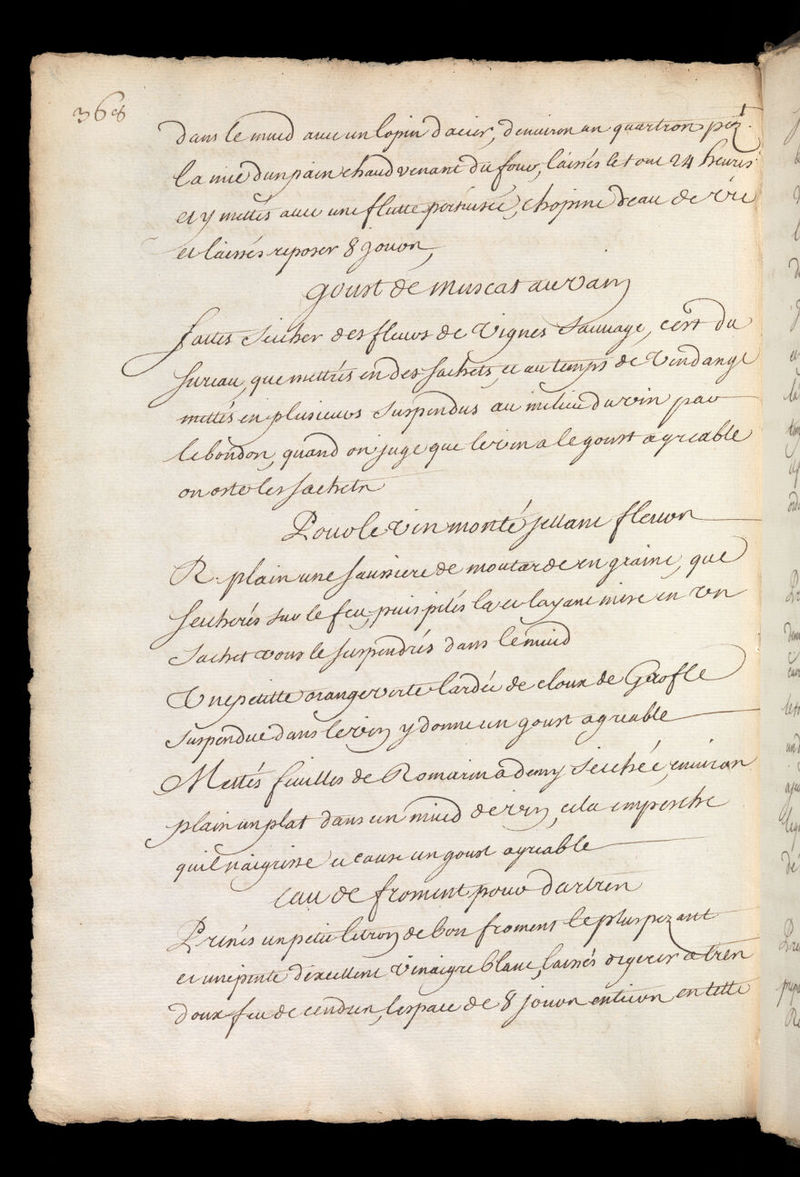 368
dans le muid avec un lopin dacier, denviron un quartron pez.t
la mie dun pain chaud venant du four, laissés le tout 24 heures
et y mettés avec une flutte perhuisée, chopine deau de vie
et laissés reposer 8 jours,
goust de muscat au vain
faites seicher des fleurs de vignes sauvage, cest du
sureau, que mettrés en des sachets, et au temps de vendange
mettés en plusieurs suspendus au milieu du vin par
le bondon, quand on juge que le vin a le goust agreable
on oste les sachets
Pour le vin monté jettant fleurs
R. plain une sausiere de moutarde en graine, que
seicherés sur le feu, puis pilés la et layant mise en un
sachet vous le suspendrés dans le muid
Une petitte orange verte lardée de cloux de Gerofle
suspendue dans le vin y donne un goust agreable
Mettés feuilles de Romarin a demy seichée, environ
plain un plat dans un muid de vin, cela empesche
quil naigrisse et cause un goust agreable
eau de froment pour dartres
Prenés un petit litron de bon froment le plus pezant
et une pinte dexcellent vinaigre blanc, laissés digerer a tres
doux feu de cendres, lespace de 8 jours entiers en telle